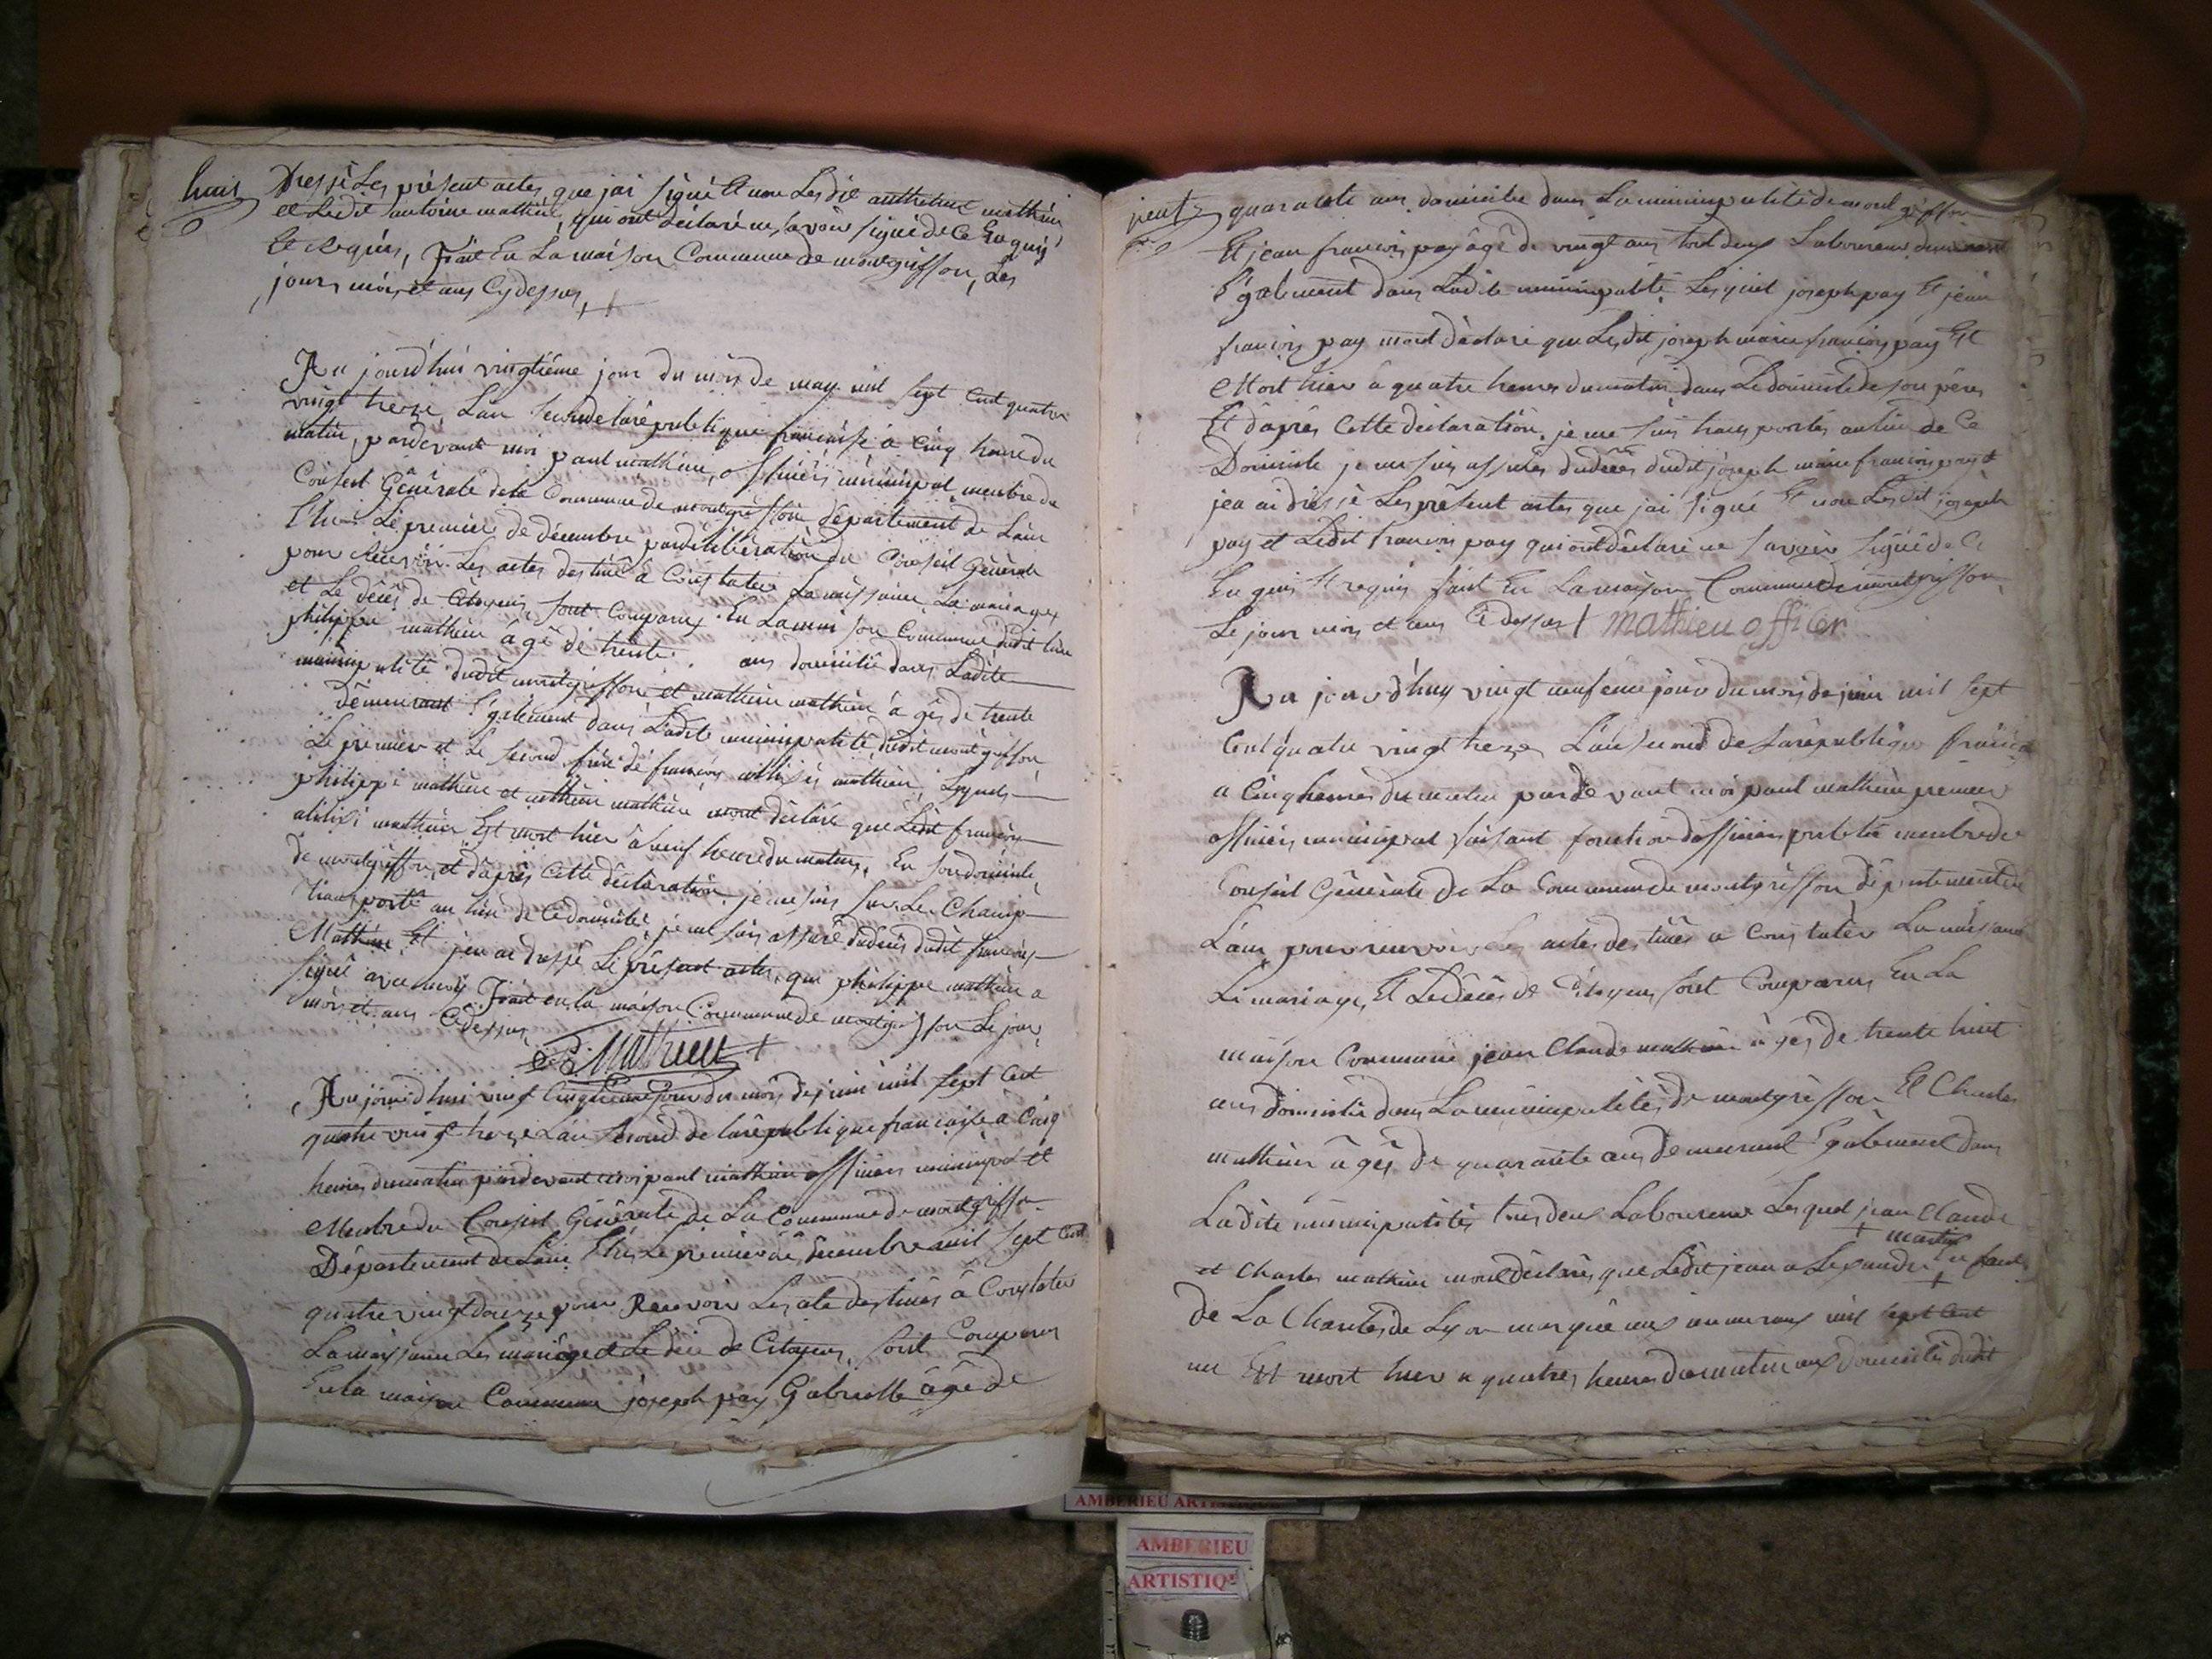 huis
Dressé Les présent actes que jai signé Et non Lesdit anthelme mathieu
et Ledit antoine mathieu, qui ont déclaré ne savoir signé de Ce Enquis
Et Requis, Fait En La maison Commune de montgriffon, Les
jours mois et ans Cy dessus, +
Au jourd'hui vingtiéme jour du mois de may mil sept Cent quatre
vingt treze Lan second de la republique francaise à Cinq heure du
matin, pardevant moi paul mathieu, officiers municipal membre du
Conseil Générale de la Commune de montgriffon département de Lain
Elu Le premier de décembre par délibération du Conseil Général
pour Recevoir Les actes destiné à Constater La naissance La mariages
et Le décès de Citoyens sont Comparus En La maison Commune dudit lieu
philippe mathieu âgé de trente ans domicilié dans Ladite
municipalité dudit montgriffon et mathieu mathieu âgés de trente
démeurant Egalement dans Ladite municipalité dudit montgriffon
Le premier et Le second frère de francois mathieu, Lesquels
philippe mathieu et mathieu mathieu mont déclaré que Ledit francois
mathieu Est mort hier à neuf heure du matin, En son domicile
de montgriffon et daprès Cette déclaration je me suis sur Le Champ
transporté au lieu de Ce domicile, je me suis assuré du décès dudit francois
Mathieu Et jen ai dressé Le présent actes, que philippe mathieu a
signé avec moy Fait en la maison Commune de montgriffon Le jour
mois et ans Cy dessus
Mathieu +
Au jourdhui vingt Cinquieme jour du mois de juin mil sept Cent
quatre vingt treze Lan second de la republique francaise à Cinq
heures du matin pardevant moi paul mathieu officiers municipal et
Membre du Conseil Générale de La Commune de montgriffon
Département de Lain Elu Le premier de décembre mil sept Cent
quatre vingt douze pour Recevoir Les acte destinés à Constater
La naissance Les mariage et Le décè de Citoyens, sont Comparus
En la maison Commune joseph pay Gabrielle âgé de
neuf
quarante ans domicilie dans La municipalité de montgriffon
Et jean francois pay âgé de vingt ans tout deux Laboureur demeurant
Egalement dans Ladite municipalité Lesquel joseph pay Et jean
francois pay mont déclaré que Lesdit joseph marie francois pay Est
Mort hier à quatre heures du matin dans Le domicile de son père
Et daprès Cette déclaration je me suis transportés au lieu de Ce
Domicile je me suis assurés du décès dudit joseph marie francois pay et
jen ai dressé Les présent actes que jai signé Et non Lesdit joseph
pay et Ledit francois pay qui ont déclaré ne savoir signé de Ce
Enquis Et requis fait En La maison Commune de montgriffon
Le jour mois et ans Cidessus + mathieu officier
Au jourdhuy vingt neufeme jour du mois de juin mil sept
Cent quatre vingt treze Lan second de la republique francaise
a Cinq heures du matin pardevant moi paul mathieu premier
officiers municipal faisant fonction dofficier public membre de
Conseil Générale de La Commune de montgriffon département de
Lain pour recevoir Les actes destinés a Constater La naissance
Le mariage, Et Le décès de Citoyens sont Comparus En La
maison Commune jean Claude mathieu âgés de trente huit
ans domicilié dans La municipalités de montgriffon Et Charles
mathieu âgés de quarante ans demeurant Egalement dans
Ladite municipalités tous deux Laboureur Lesquel jean Claude
+ martin
et Charles mathieu mont déclarés que Ledit jean alexandre + enfant
de La Charités de Lyon marqué aux numeraux mil sept cent
un Est mort hier a quatres heures du matin aux domicilés dudit
AMBERIEU ARTISTIQUE
AMBERIEU
ARTISTIQ